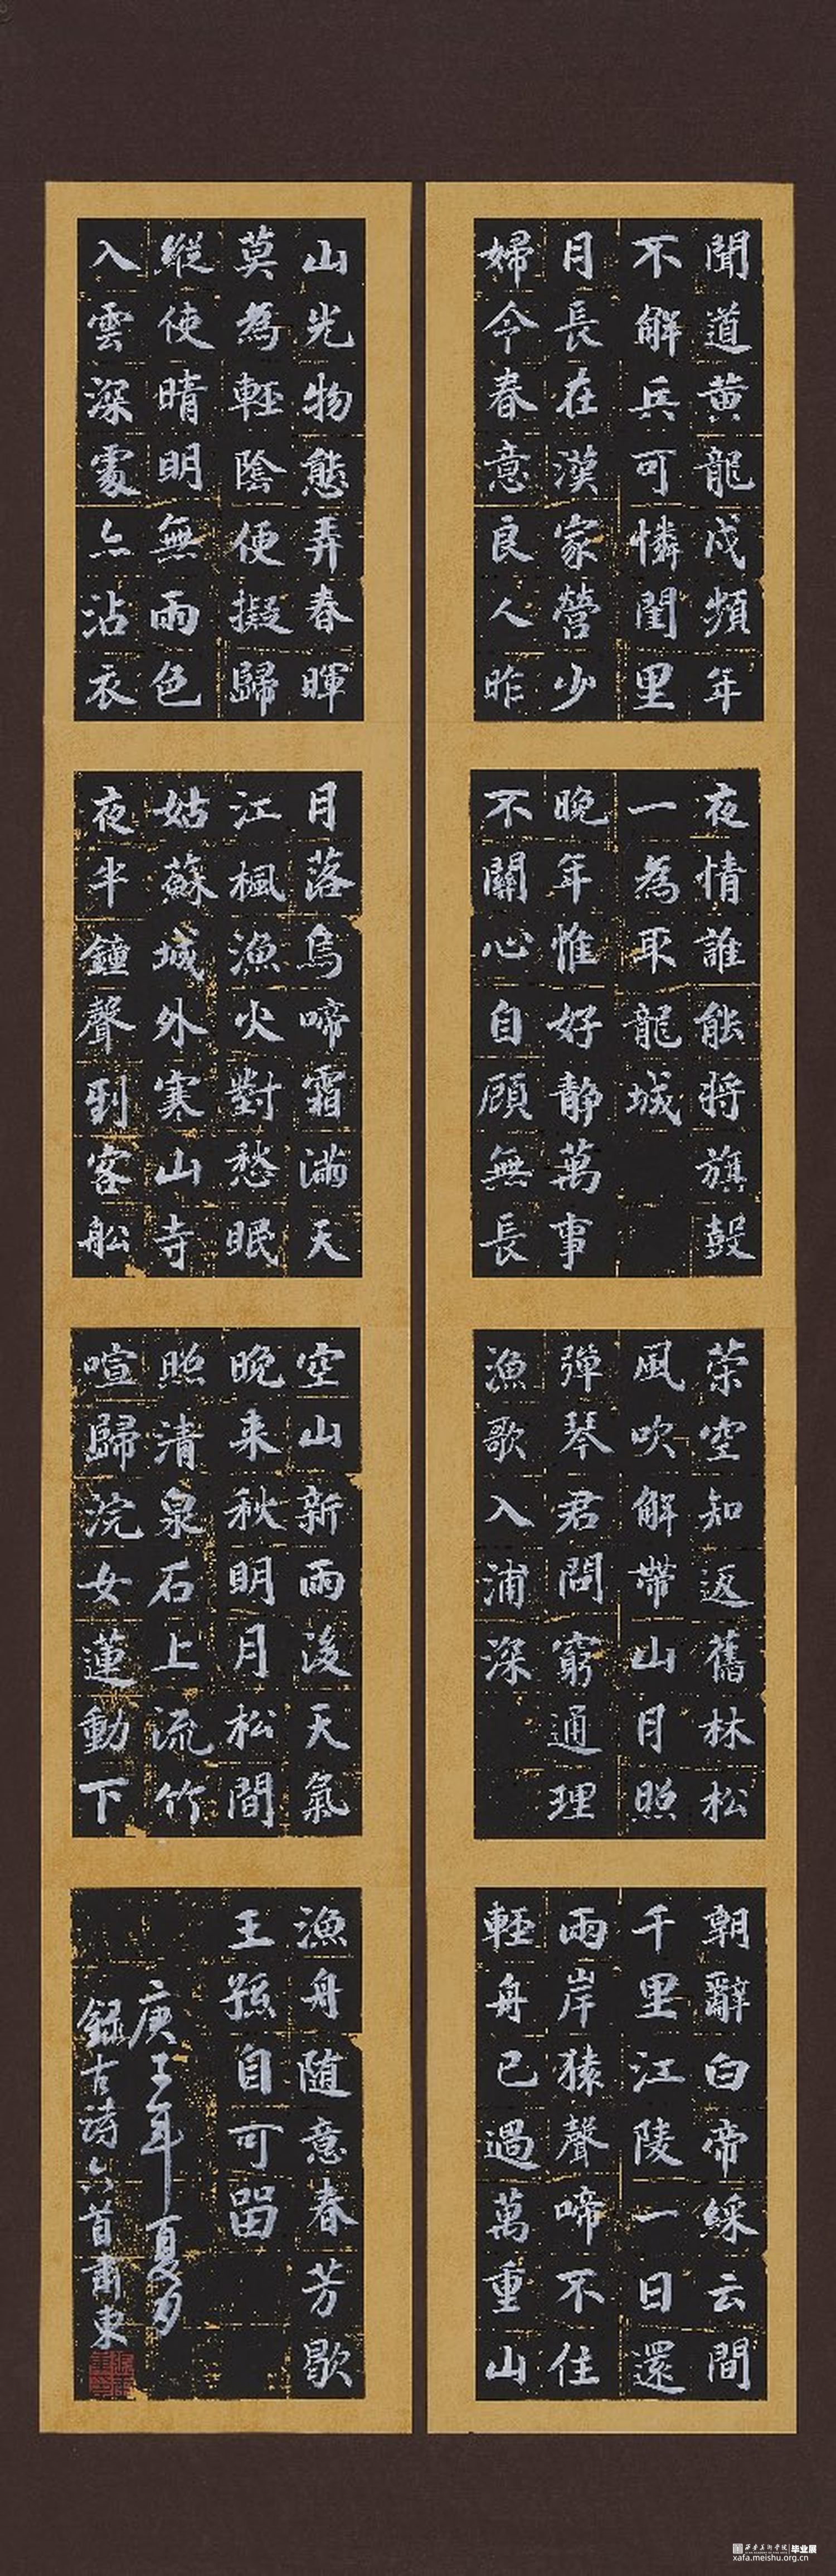 聞道黄龍戍頻年
不解兵可憐閨里
月長在漢家營少
婦今春意良人昨
夜情誰能将旗鼓
一為取龍城
晚年惟好静萬事
不關心自顧無長
策空知返舊林松
風吹解帶山月照
彈琴君問窮通理
漁歌入浦深
朝辭白帝綵云間
千里江陵一日還
兩岸猿聲啼不住
輕舟已過萬重山
山光物態弄春暉
莫為輕陰便擬歸
縱使晴明無雨色
入雲深處亦沾衣
月落烏啼霜满天
江楓漁火對愁眠
姑蘇城外寒山寺
夜半鐘聲到客船
空山新雨後天氣
晚来秋明月松間
照清泉石上流竹
喧歸浣女蓮動下
漁舟随意春芳歇
王孫自可留
庚子年夏月
錄古詩六首
西安美术学院 毕业展
xafa.meishu.org.cn